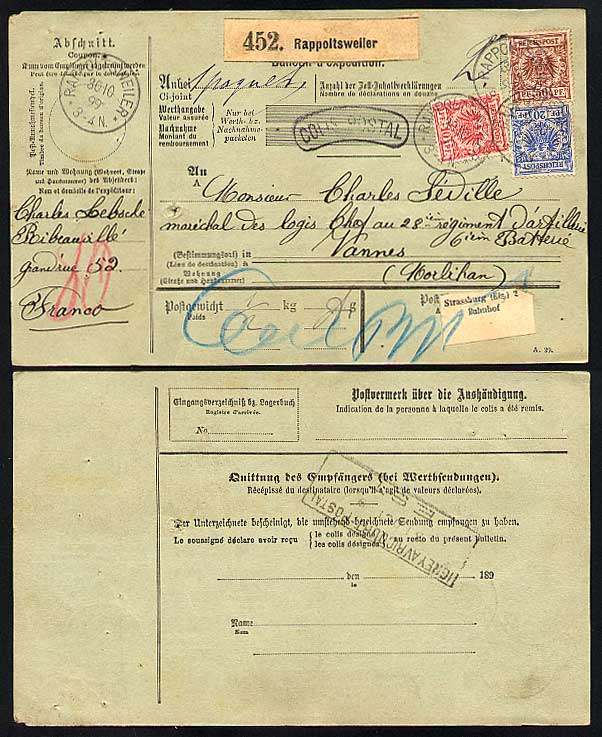 Abschnitt.
Coupon.
Kann vom Empfänger abgetrennt werden
Peut être détaché par le destinataire.
Name und Wohnung (Wohnort, Straße
und Hausnummer) des Absenders:
Nom et domicile de l'expéditeur:
Charles Lebsche
Ribeauvillé
grand'rue 52.
Franco
452. Rappoltsweiler
Bulletin d'expédition.
Anbei
Ci-joint
1 paquet
Anzahl der Zoll-Inhaltserklärungen
Nombre de déclarations en douane
2
Werthangabe
Valeur assurée
Nachnahme
Montant du
remboursement
Nur bei
Werth- bz.
Nachnahme-
packeten
COLIS POSTAL
REICHSPOST
50 PF
20 PF
REICHSPOST
An
A
Monsieur Charles Séville
maréchal des logis Chef au 28ième régiment d'artillerie
6ième Batterie
(Bestimmungsort) in
(Lieu de destination) à
Vannes
Wohnung
(Straße und Hausnummer)
(Morbihan)
Postgewicht
Poids
kg
g
Post
Strassburg (Els.) 2
Bahnhof
A. 29.
Eingangsverzeichniß bz. Lagerbuch
Registre d'arrivée.
No.
Postvermerk über die Aushändigung.
Indication de la personne à laquelle le colis a été remis.
Quittung des Empfängers (bei Werthsendungen).
Récépissé du destinataire (lorsqu'il s'agit de valeurs déclarées).
IGNEY-AVRICOURT POSTAL
Der Unterzeichnete bescheinigt, die umstehend bezeichnete Sendung empfangen zu haben.
Le soussigné déclare avoir reçu { le colis désigné / les colis désignés } au recto du présent bulletin.
den
le
189
Name
Nom